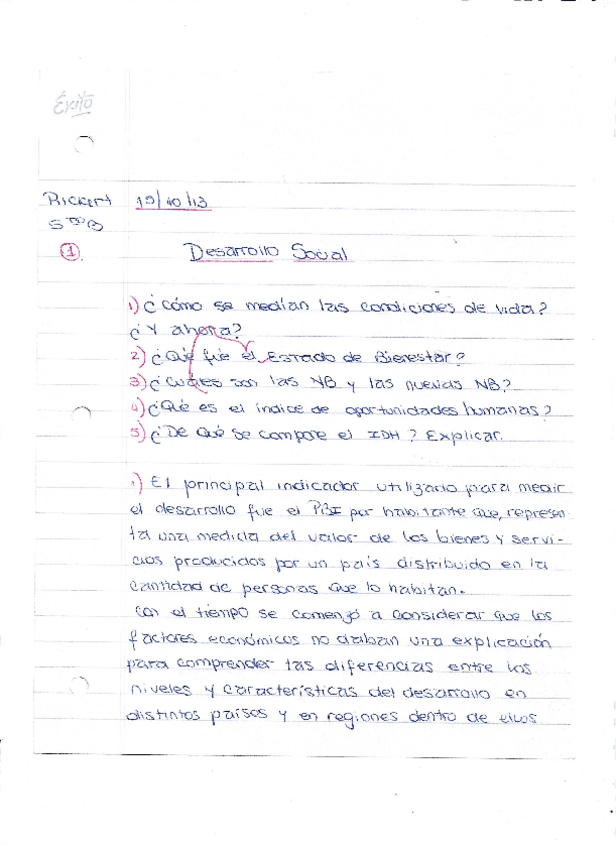 Éxito
Rickert 19/10/13
5toB
1 Desarrollo Social
1) ¿Cómo se medían las condiciones de vida?
¿Y ahora?
2) ¿Qué fue el Estado de Bienestar?
3) ¿Cuáles son las NB y las nuevas NB?
4) ¿Qué es el índice de oportunidades humanas?
5) ¿De qué se compone el IDH? Explicar.
1) El principal indicador utilizado para medir
el desarrollo fue el PBI por habitante que, represen-
ta una medida del valor de los bienes y servi-
cios producidos por un país distribuido en la
cantidad de personas que lo habitan.
Con el tiempo se comenzó a considerar que los
factores económicos no daban una explicación
para comprender las diferencias entre los
niveles y características del desarrollo en
distintos países y en regiones dentro de ellos